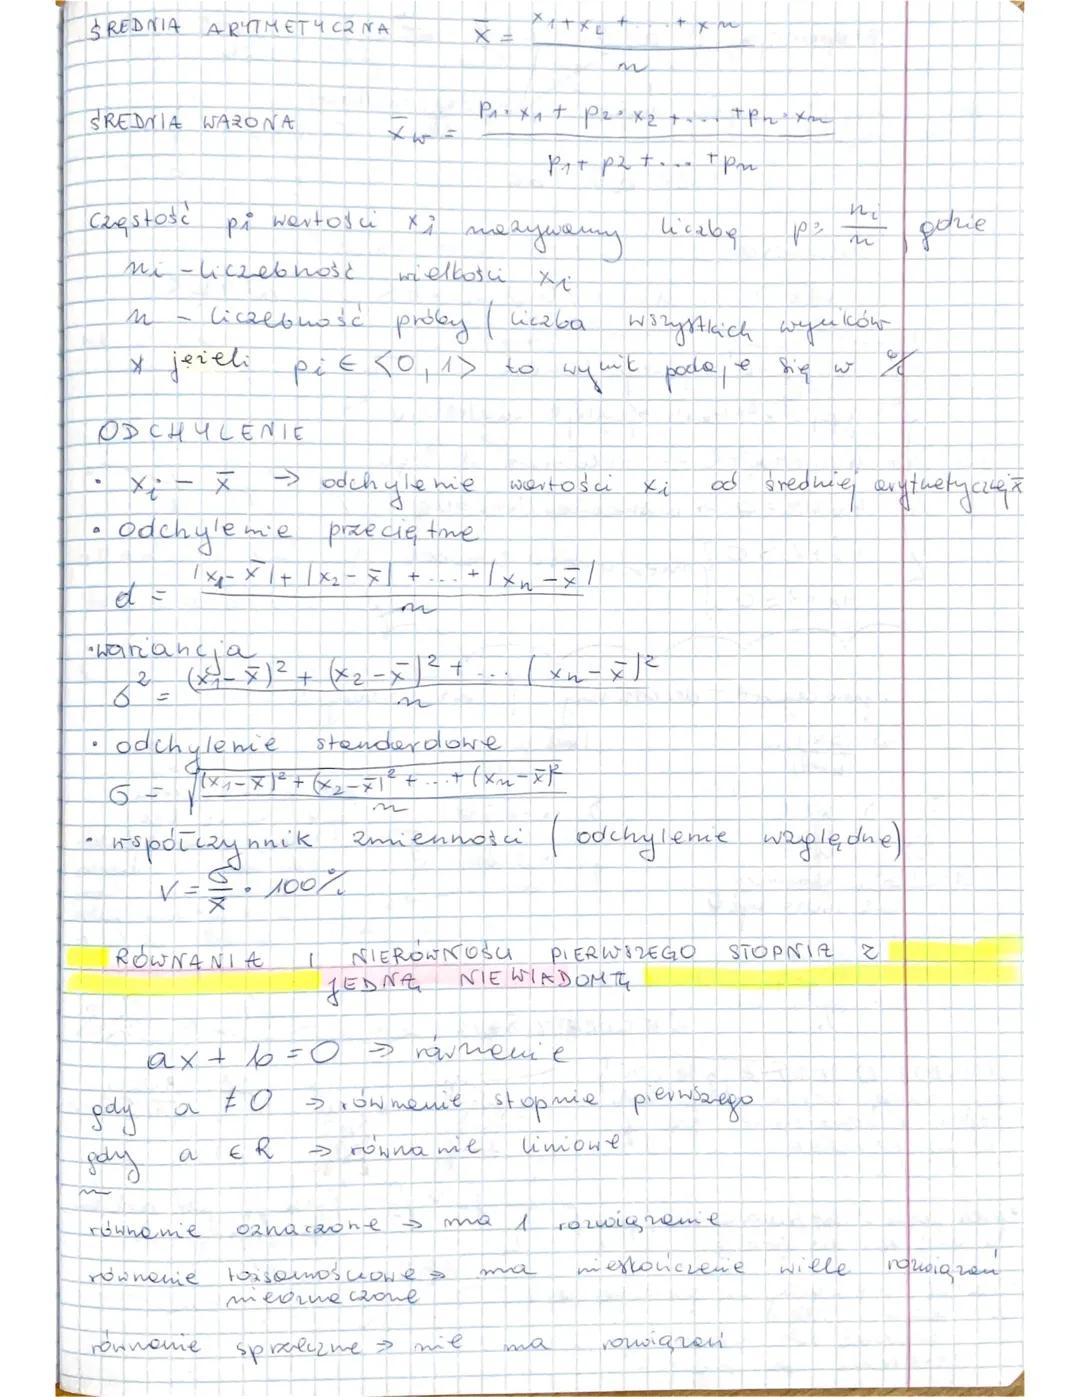 ŚREDNIA ARYTMETYCZNA x̄ = (x1+x2+...+xn)/n
ŚREDNIA WAŻONA x̄w = (p1·x1 + p2·x2 +... +pn·xn)/(p1+p2+...+pn)
Częstość pi wartości xi nazywamy liczbę p= ni/n, gdzie
ni - liczebność wielkości xi
n - liczebność próby (liczba wszystkich wyników
* jeżeli pi ∈ <0,1> to wynik podaje się w %
ODCHYLENIE
• xi - x̄ → odchylenie wartości xi od średniej arytmetycznej x̄
• odchylenie przeciętne
d = (|x1-x̄|+|x2-x̄|+...+|xn-x̄|)/n
• wariancja
σ² = ((x1-x̄)²+(x2-x̄)²+...(xn-x̄)²)/n
• odchylenie standardowe
σ = √(((x1-x̄)²+(x2-x̄)²+...+(xn-x̄)²)/n)
• współczynnik zmienności (odchylenie względne)
V = σ/x̄ · 100%
RÓWNANIA I NIERÓWNOŚCI PIERWSZEGO STOPNIA Z
JEDNĄ NIEWIADOMĄ
ax + b = 0 → równanie
gdy a ≠ 0 → równanie stopnia pierwszego
gdy a ∈ R → równanie liniowe
równanie oznaczone → ma 1 rozwiązanie
równanie tożsamościowe → ma nieskończenie wiele rozwiązań
nieoznaczone
równanie sprzeczne → nie ma rozwiązań